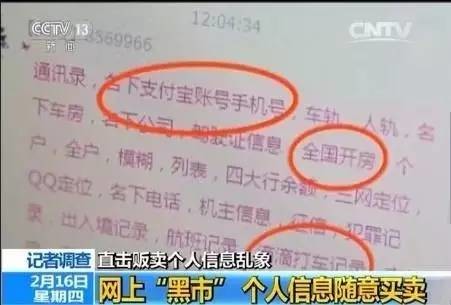 CCTV 13
新闻
12:04:34
CNTV
8569966
通讯录，名下支付宝账号手机号，车轨，人轨，名
下车房，名下公司，驾驶证信息，全国开房，个
户，全户，模糊，列表，四大行余额，三网定位，
QQ定位，名下电话，机主信息，征信，犯罪记
录，出入境记录，航班记录，滴滴打车记录
记者调查
直击贩卖个人信息乱象
2月16日
星期四
网上“黑市” 个人信息随意买卖